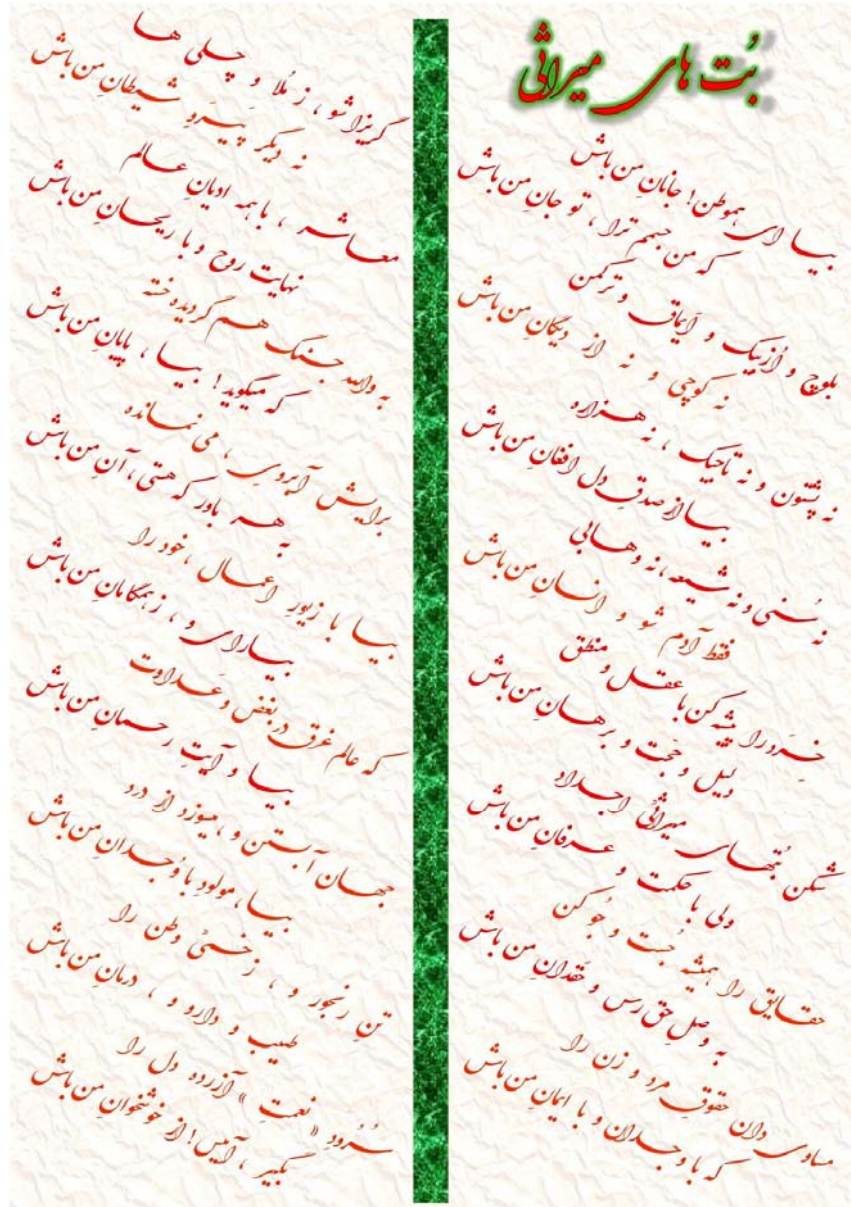 بُت های میراثی
بیا ای هموطن! جانانِ من باش
که من جسمم ترا، تو جانِ من باش
بلوچ و اُزبیک و ایماق و ترکمن
نه کوچی و نه از دیگانِ من باش
نه پشتون و نه تاجیک، نه هزاره
بیا از صدقِ دل افغانِ من باش
نه سُنی و نه شیعه، نه وهابی
فقط آدم شو و انسانِ من باش
خِرَد را پیشه کن با عقل و منطق
دلیل و حُجت و برهانِ من باش
شکن بُتهای میراثیُ اجداد
ولی با حکمت و عرفانِ من باش
حقایق را همیشه جُست و جُو کن
به وصلِ حق رس و حَقدانِ من باش
مساوی دان حقوقِ مرد و زن را
که با وجدان و با ایمانِ من باش
گریزا شو، ز مُلا و چلی ها
نه دیگر پیروِ شیطانِ من باش
معاشر، با همه ادیانِ عالم
نهایت روح و با ریحانِ من باش
به والله جنگ هم گردیده خسته
که میگوید! بیا، پایانِ من باش
برایش آبروی، می نمانده
به هر باور که هستی، آنِ من باش
بیا با زیورِ اعمال، خود را
بیارای و، ز همگامانِ من باش
که عالم غرق در بغض و عَداوت
بیا و آیتِ رحمانِ من باش
جهان آبستن و، میسوزد از درد
بیا، مولودِ با وُجدانِ من باش
تنِ رنجور و، زخمیُ وطن را
طبیب و دارو و، درمانِ من باش
سُرُودِ «نعمتِ» آزرده دل را
بگیر، آبس! از خوشخوانِ من باش